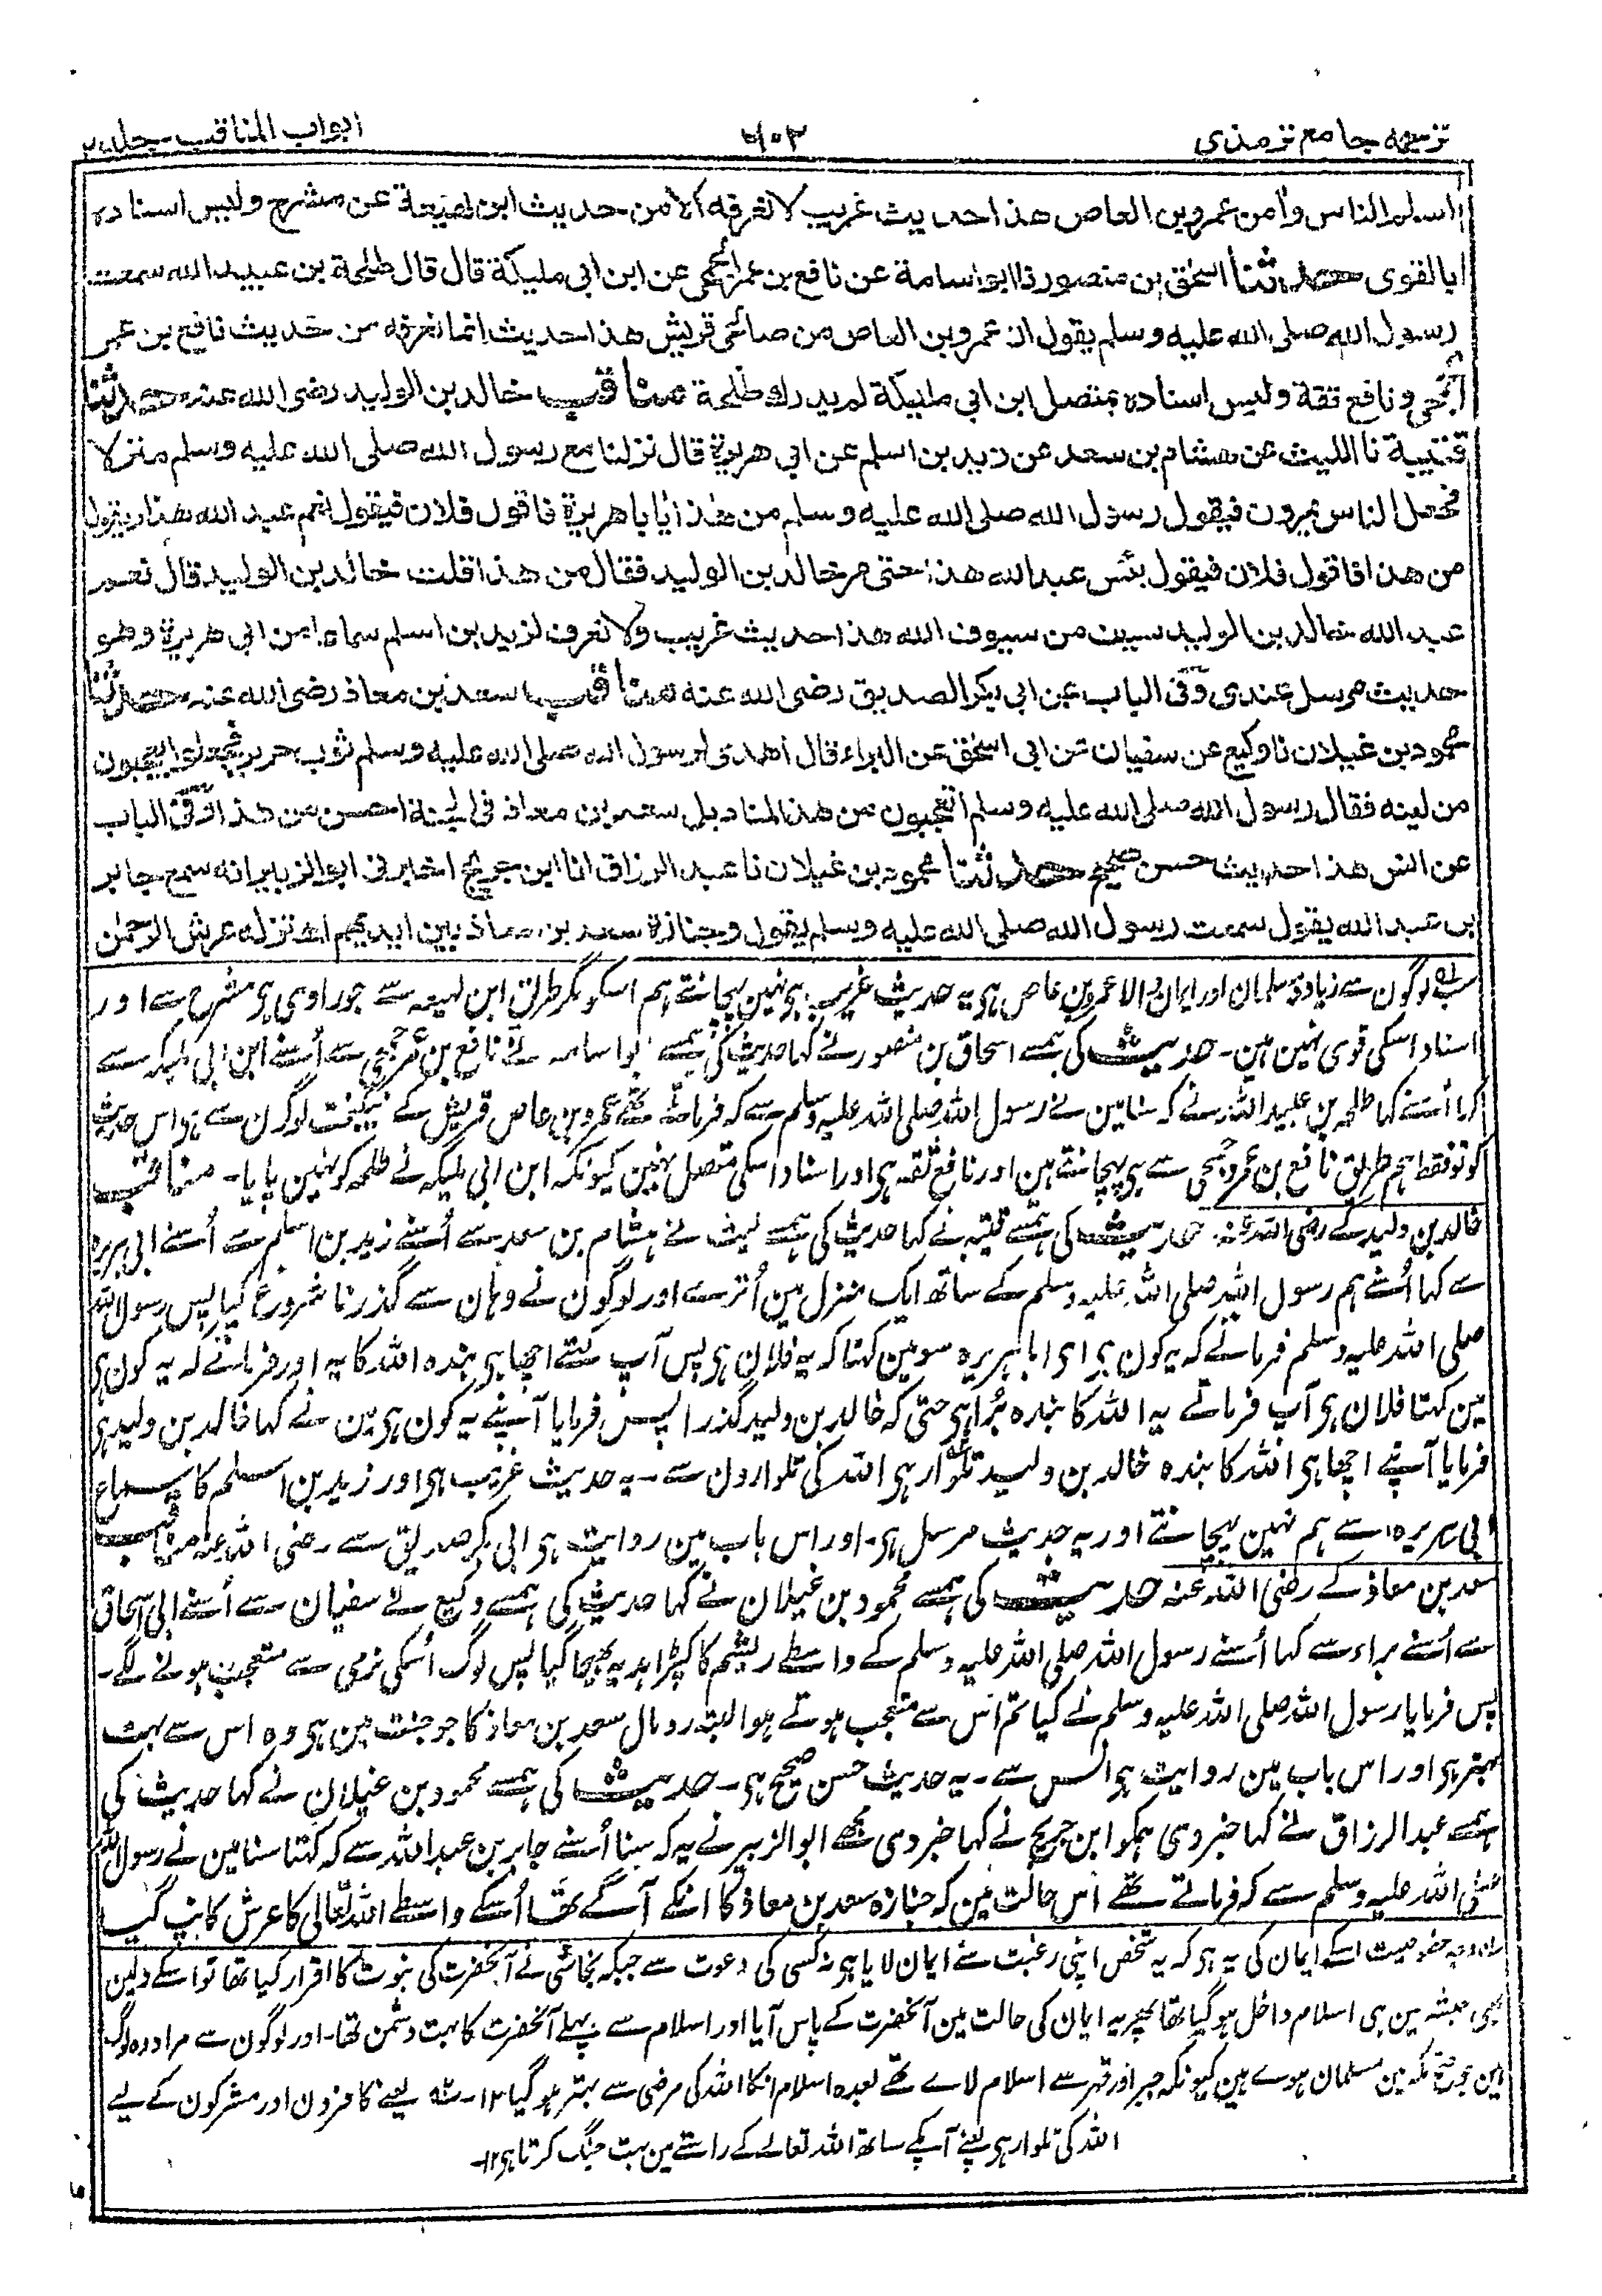 ترجمه جامع ترمذی
۷۰۳
ابواب المناقب جلد۲
اسلم الناس وامن عمرو بن العاص هذا حدیث غریب لا نعرفه الا من حدیث ابن لهیعة عن مشرح ولیس اسناده
بالقوی حدثنا اسحٰق بن منصور نا ابو اسامة عن نافع بن عمر الجمحی عن ابن ابی ملیکة قال قال طلحة بن عبید الله سمعت
رسول الله صلی الله علیه وسلم یقول ان عمرو بن العاص من صالحی قریش هذا حدیث انما نعرفه من حدیث نافع بن عمر
الجمحی ونافع ثقة ولیس اسناده بمتصل ابن ابی ملیکة لم یدرك طلحة مناقب خالد بن الولید رضی الله عنه حدثنا
قتیبة نا اللیث عن هشام بن سعد عن زید بن اسلم عن ابی هریرة قال نزلنا مع رسول الله صلی الله علیه وسلم منزلا
فجعل الناس یمرون فیقول رسول الله صلی الله علیه وسلم من هذا یا با هریرة فاقول فلان فیقول نعم عبد الله هذا ویقول
من هذا فاقول فلان فیقول بئس عبد الله هذا حتی مر خالد بن الولید فقال من هذا قلت خالد بن الولید قال نعم
عبد الله خالد بن الولید سیف من سیوف الله هذا حدیث غریب ولا نعرف لزید بن اسلم سماعا من ابی هریرة وهو
حدیث مرسل عندی وفی الباب عن ابی بکر الصدیق رضی الله عنه مناقب سعد بن معاذ رضی الله عنه حدثنا
محمود بن غیلان نا وکیع عن سفیان عن ابی اسحٰق عن البراء قال اهدی لرسول الله صلی الله علیه وسلم ثوب حریر فجعلوا یعجبون
من لینه فقال رسول الله صلی الله علیه وسلم اتعجبون من هذا لمنادیل سعد بن معاذ فی الجنة احسن من هذا وفی الباب
عن انس هذا حدیث حسن صحیح حدثنا محمود بن غیلان نا عبد الرزاق انا ابن جریج اخبرنی ابو الزبیر انه سمع جابر
بن عبد الله یقول سمعت رسول الله صلی الله علیه وسلم یقول وجنازة سعد بن معاذ بین ایدیهم اهتز له عرش الرحمٰن
سب لوگون سے زیادہ مسلمان اور ایمان والا عمرو بن عاص ہی یہ حدیث غریب ہی نہین پہچانتے ہم اسکو مگر طریق ابن لہیعہ سے جو راوی ہی مشرح سے اور
اسناد اسکی قوی نہین ہین۔ حدیث کی ہمسے اسحاق بن منصور نے کہا حدیث کی ہمسے ابو اسامہ نے نافع بن عمر جمحی سے اُسنے ابن ابی ملیکہ سے
کہا اُسنے کہا طلحہ بن عبید اللہ نے کہ سنا مین نے رسول اللہ صلی اللہ علیہ وسلم سے کہ فرماتے تھے عمرو بن عاص قریش کے نیکبخت لوگون سے ہی اس حدیث
کو تو فقط ہم طریق نافع بن عمر و جمحی سے ہی پہچانتے ہین اور نافع ثقہ ہی اور اسناد اسکی متصل نہین کیونکہ ابن ابی ملیکہ نے طلحہ کو نہین پایا۔ مناقب
خالد بن ولید کے رضی اللہ عنہ۔ حدیث کی ہمسے قتیبہ نے کہا حدیث کی ہمسے لیث نے ہشام بن سعد سے اُسنے زید بن اسلم سے اُسنے ابی ہریرہ
سے کہا اُسنے ہم رسول اللہ صلی اللہ علیہ وسلم کے ساتھ ایک منزل مین اُترے اور لوگون نے وہان سے گذرنا شروع کیا پس رسول اللہ
صلی اللہ علیہ وسلم فرماتے کہ یہ کون ہی ای ابا ہریرہ سو مین کہتا کہ یہ فلان ہی پس آپ کہتے اچھا ہی بندہ اللہ کا یہ اور فرماتے کہ یہ کون ہی
مین کہتا فلان ہی آپ فرماتے یہ اللہ کا بندہ بُرا ہی حتی کہ خالد بن ولید گذرا پس فرمایا آپنے یہ کون ہی مین نے کہا خالد بن ولید ہی
فرمایا آپنے اچھا ہی اللہ کا بندہ خالد بن ولید تلوار ہی اللہ کی تلوارون سے۔ یہ حدیث غریب ہی اور زید بن اسلم کا سماع
ابی ہریرہ سے ہم نہین پہچانتے اور یہ حدیث مرسل ہی۔ اور اس باب مین روایت ہی ابی بکر صدیق سے رضی اللہ عنہ مناقب
سعد بن معاذ کے رضی اللہ عنہ حدیث کی ہمسے محمود بن غیلان نے کہا حدیث کی ہمسے وکیع نے سفیان سے اُسنے ابی اسحاق
سے اُسنے براء سے کہا اُسنے رسول اللہ صلی اللہ علیہ وسلم کے واسطے ریشم کا کپڑا ہدیہ بھیجا گیا پس لوگ اُسکی نرمی سے متعجب ہونے لگے۔
پس فرمایا رسول اللہ صلی اللہ علیہ وسلم نے کیا تم اس سے متعجب ہوتے ہو البتہ رومال سعد بن معاذ کا جو جنت مین ہی وہ اس سے بہت
بہتر ہی اور اس باب مین روایت ہی انس سے۔ یہ حدیث حسن صحیح ہی۔ حدیث کی ہمسے محمود بن غیلان نے کہا حدیث کی
ہمسے عبد الرزاق نے کہا خبر دی ہمکو ابن جریج نے کہا خبر دی مجھے ابو الزبیر نے یہ کہ سنا اُسنے جابر بن عبد اللہ سے کہ کہتا سنا مین نے رسول اللہ
صلی اللہ علیہ وسلم سے کہ فرماتے تھے اس حالت مین کہ جنازہ سعد بن معاذ کا انکے آگے تھا اُسکے واسطے اللہ تعالی کا عرش کانپ گیا
وجہ خصوصیت اسکے ایمان کی یہ ہی کہ یہ شخص اپنی رغبت سے ایمان لایا ہی نہ کسی کی دعوت سے جبکہ نجاشی نے آنحضرت کی نبوت کا اقرار کیا تھا تو اسکے دلمین
حبشہ مین ہی اسلام داخل ہو گیا تھا پھر یہ ایمان کی حالت مین آنحضرت کے پاس آیا اور اسلام سے پہلے آنحضرت کا بہت دشمن تھا۔ اور لوگون سے مراد وہ لوگ
ہین جو فتح مکہ مین مسلمان ہوے ہین کیونکہ جبر اور قہر سے اسلام لاے تھے بعدہ اسلام انکا اللہ کی مرضی سے بہتر ہو گیا ۱۲۔ یعنے کافرون اور مشرکون کے لیے
اللہ کی تلوار ہی یعنے آپکے ساتھ اللہ تعالے کے راستے مین بہت جنگ کرتا ہی ۱۲۔